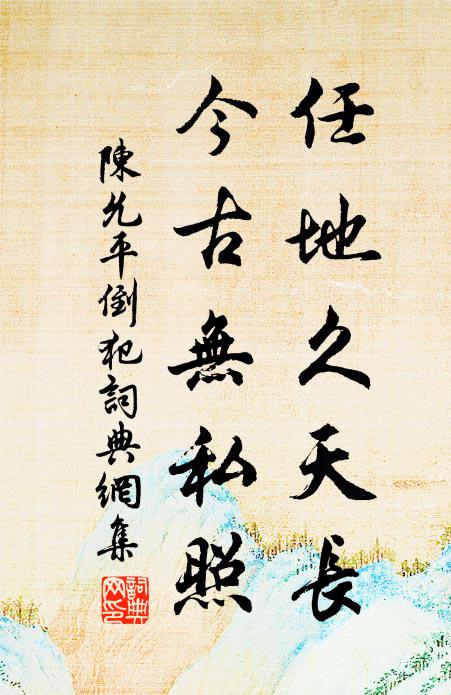 任地久天長
今古無私照
陳允平倒犯詞典網集
詞典網印